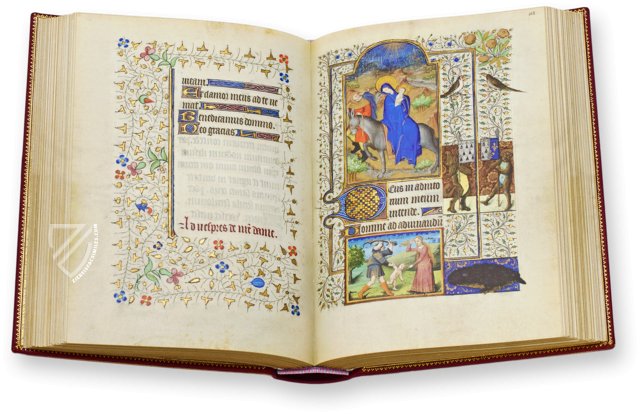 meam
Et clamor meus ad te ve
niat
Benedicamus domino.
Deo gracias
A d vespres de nr̄e dame.
Eus in adiuto
rium meum
intende.
Domine ad adiuuandū
FACSIMILEFINDER.COM